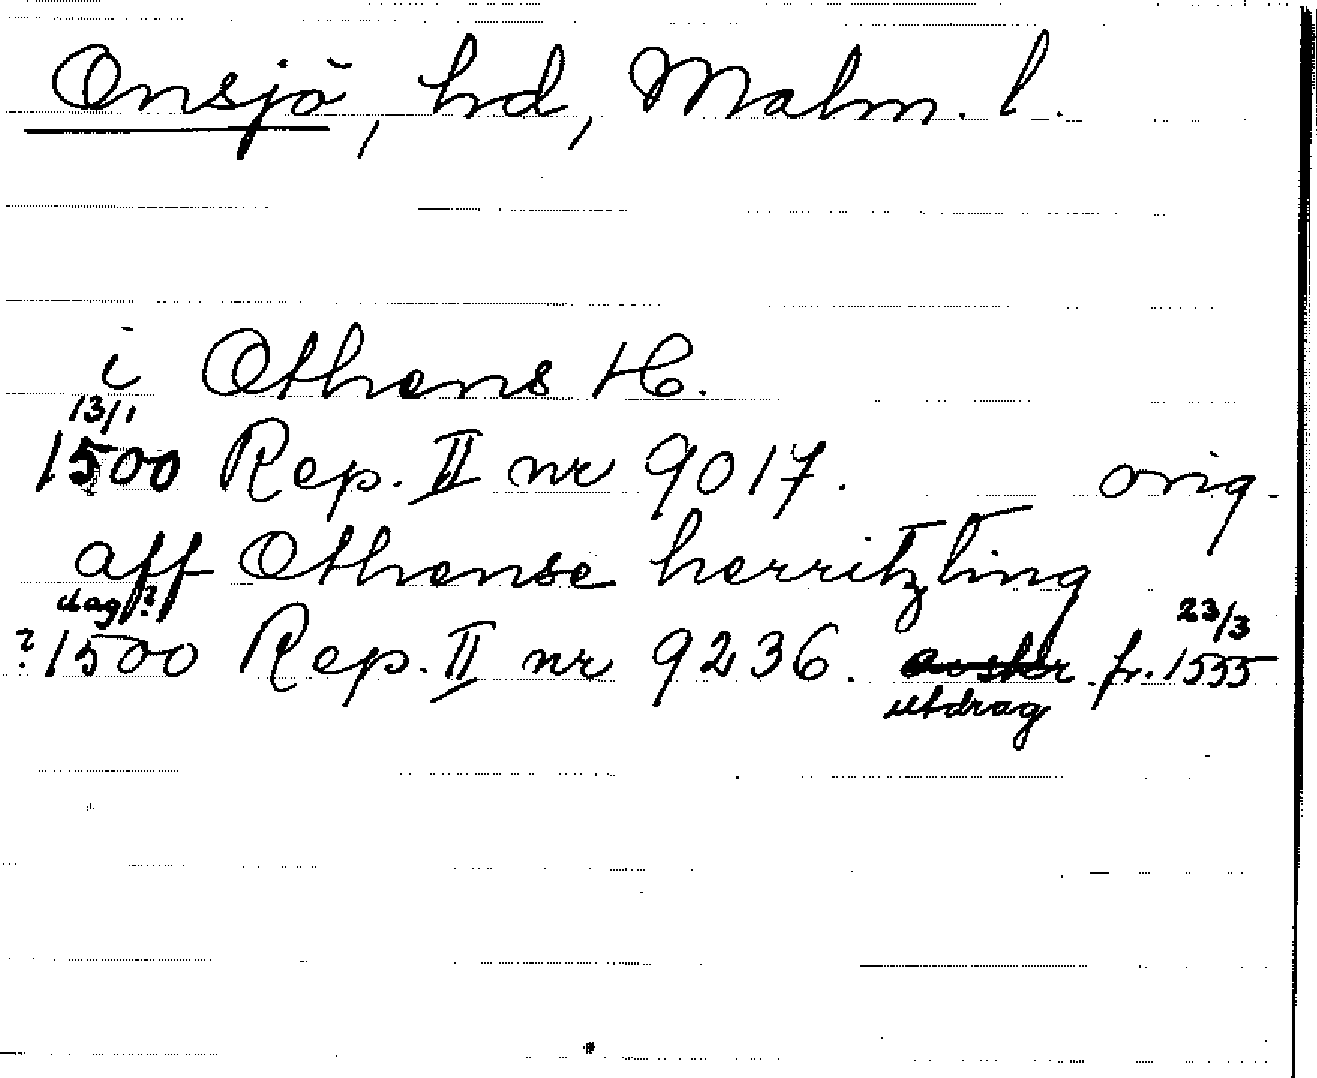 Onsjö, hd, Malm. l.
i Othens H.
13/1
1500 Rep. II nr 9017. orig.
aff Othense herritzting
dag?
?1500 Rep. II nr 9236. fr. 23/3 1535
utdrag